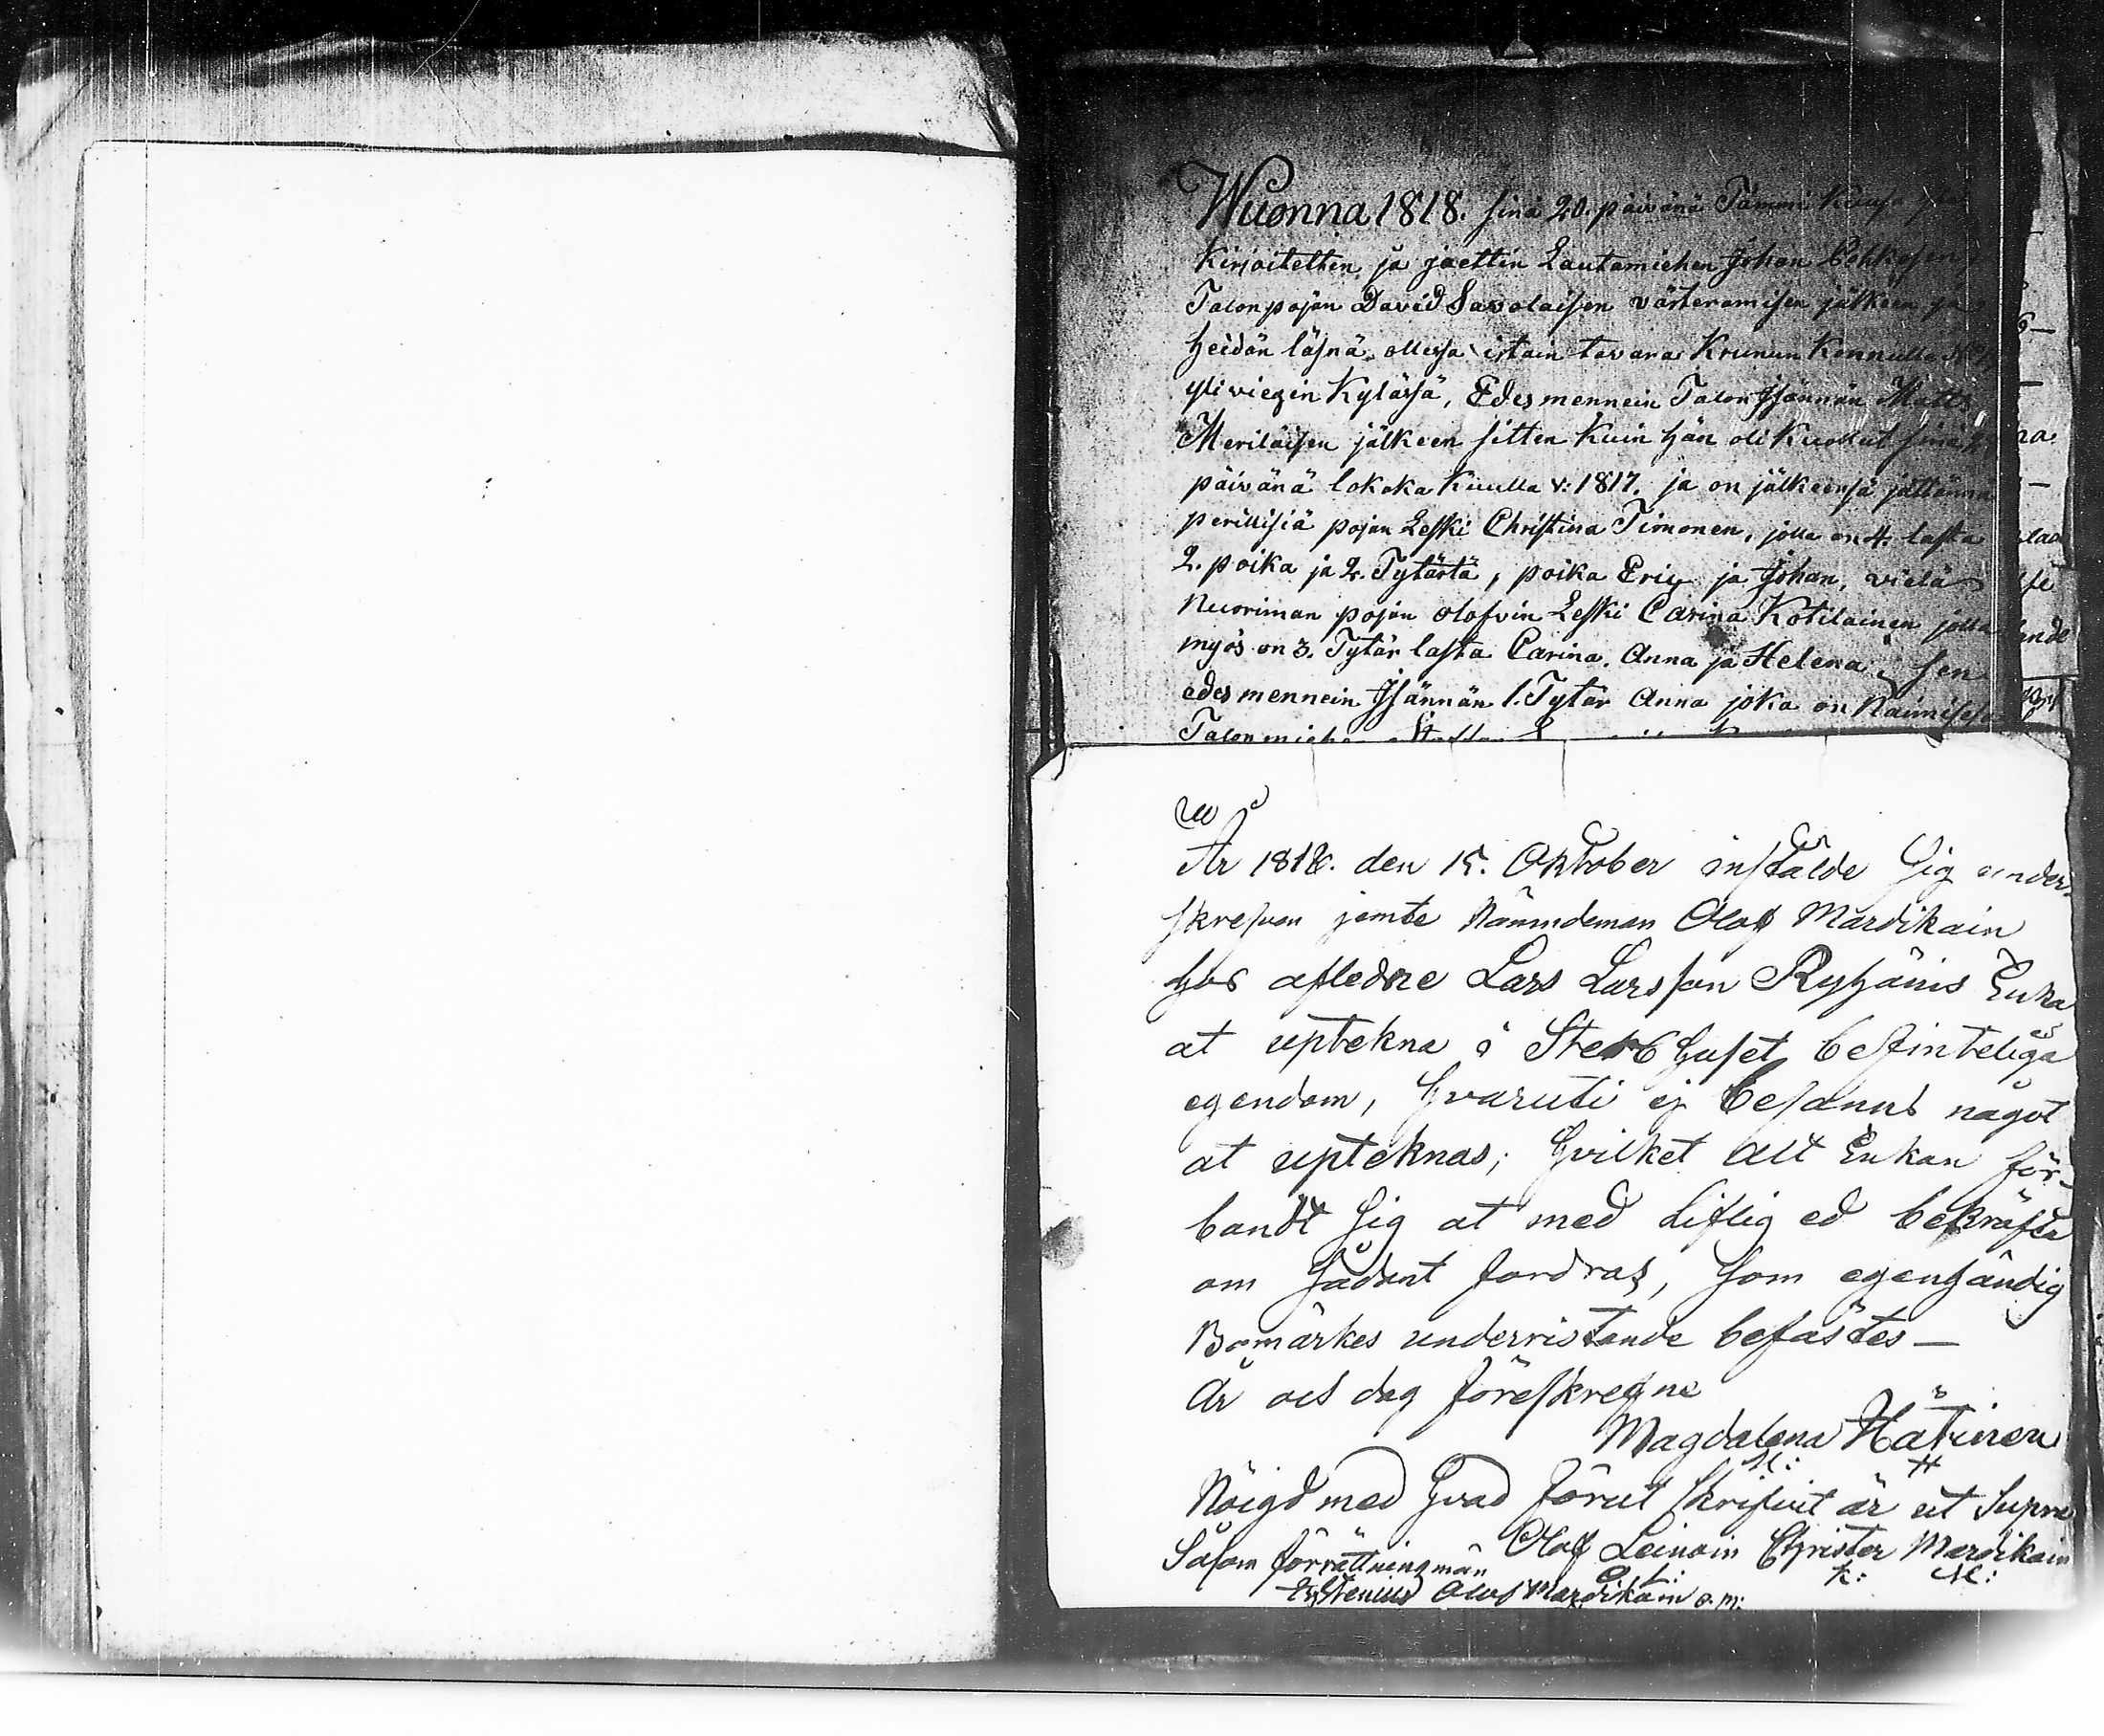 Wuonna 1818. sinä 20. päivänä Tammi Kuusa
Kirjoitettin ja jaettin Lautamiehen Johan
Talonpojan David Savolaisen värteramisen jälkeen ja
heidän läsnä ollessa irtain tavara Krunun Konnulla
yli viexin Kylässä, Edesmennein Talon Isännän Matts
Meriläisen jälkeen sitten Kuin hän oli Kuollut sinä
päivänä lokoka Kuulla v: 1817. ja on jälkeensä jättänny
perillisiä pojan Leski Christina Timonen, jolla on 4. lasta
2. poika ja 2. Tytärtä, poika Eric ja Johan, vielä
Nuoriman pojan Olofvin Leski Carina Kotilainen jolla
myös on 3. Tytär lasta Carina, Anna ja Helena, sen
edesmennein Isännän 1. Tytär Anna joka on Naimisesa
År 1818. den 15. Oktober instälde sig under-
skrefven jemte Nämndeman Olof Mardikain
hos afledne Lars Larsson Ryhänis Enka
at uptekna i Sterbhuset befinteliga
egendom, hvaruti ej befanns något
at upteknas; hvilket alt Enkan för-
bandt sig at med Liflig ed bekräfta
om sådant fordras, som egenhändig
Bomärkes underristande befästes —
År ock dag föreskrefne
Magdalena Hätinen
M: H
Nöigd med hvad förut skrifvit är ut Supra
Olof Leinoin Christer Mardikain
O. L: K: M:
Såsom förrättningmän
Stenius Olof Mardikain O. M: